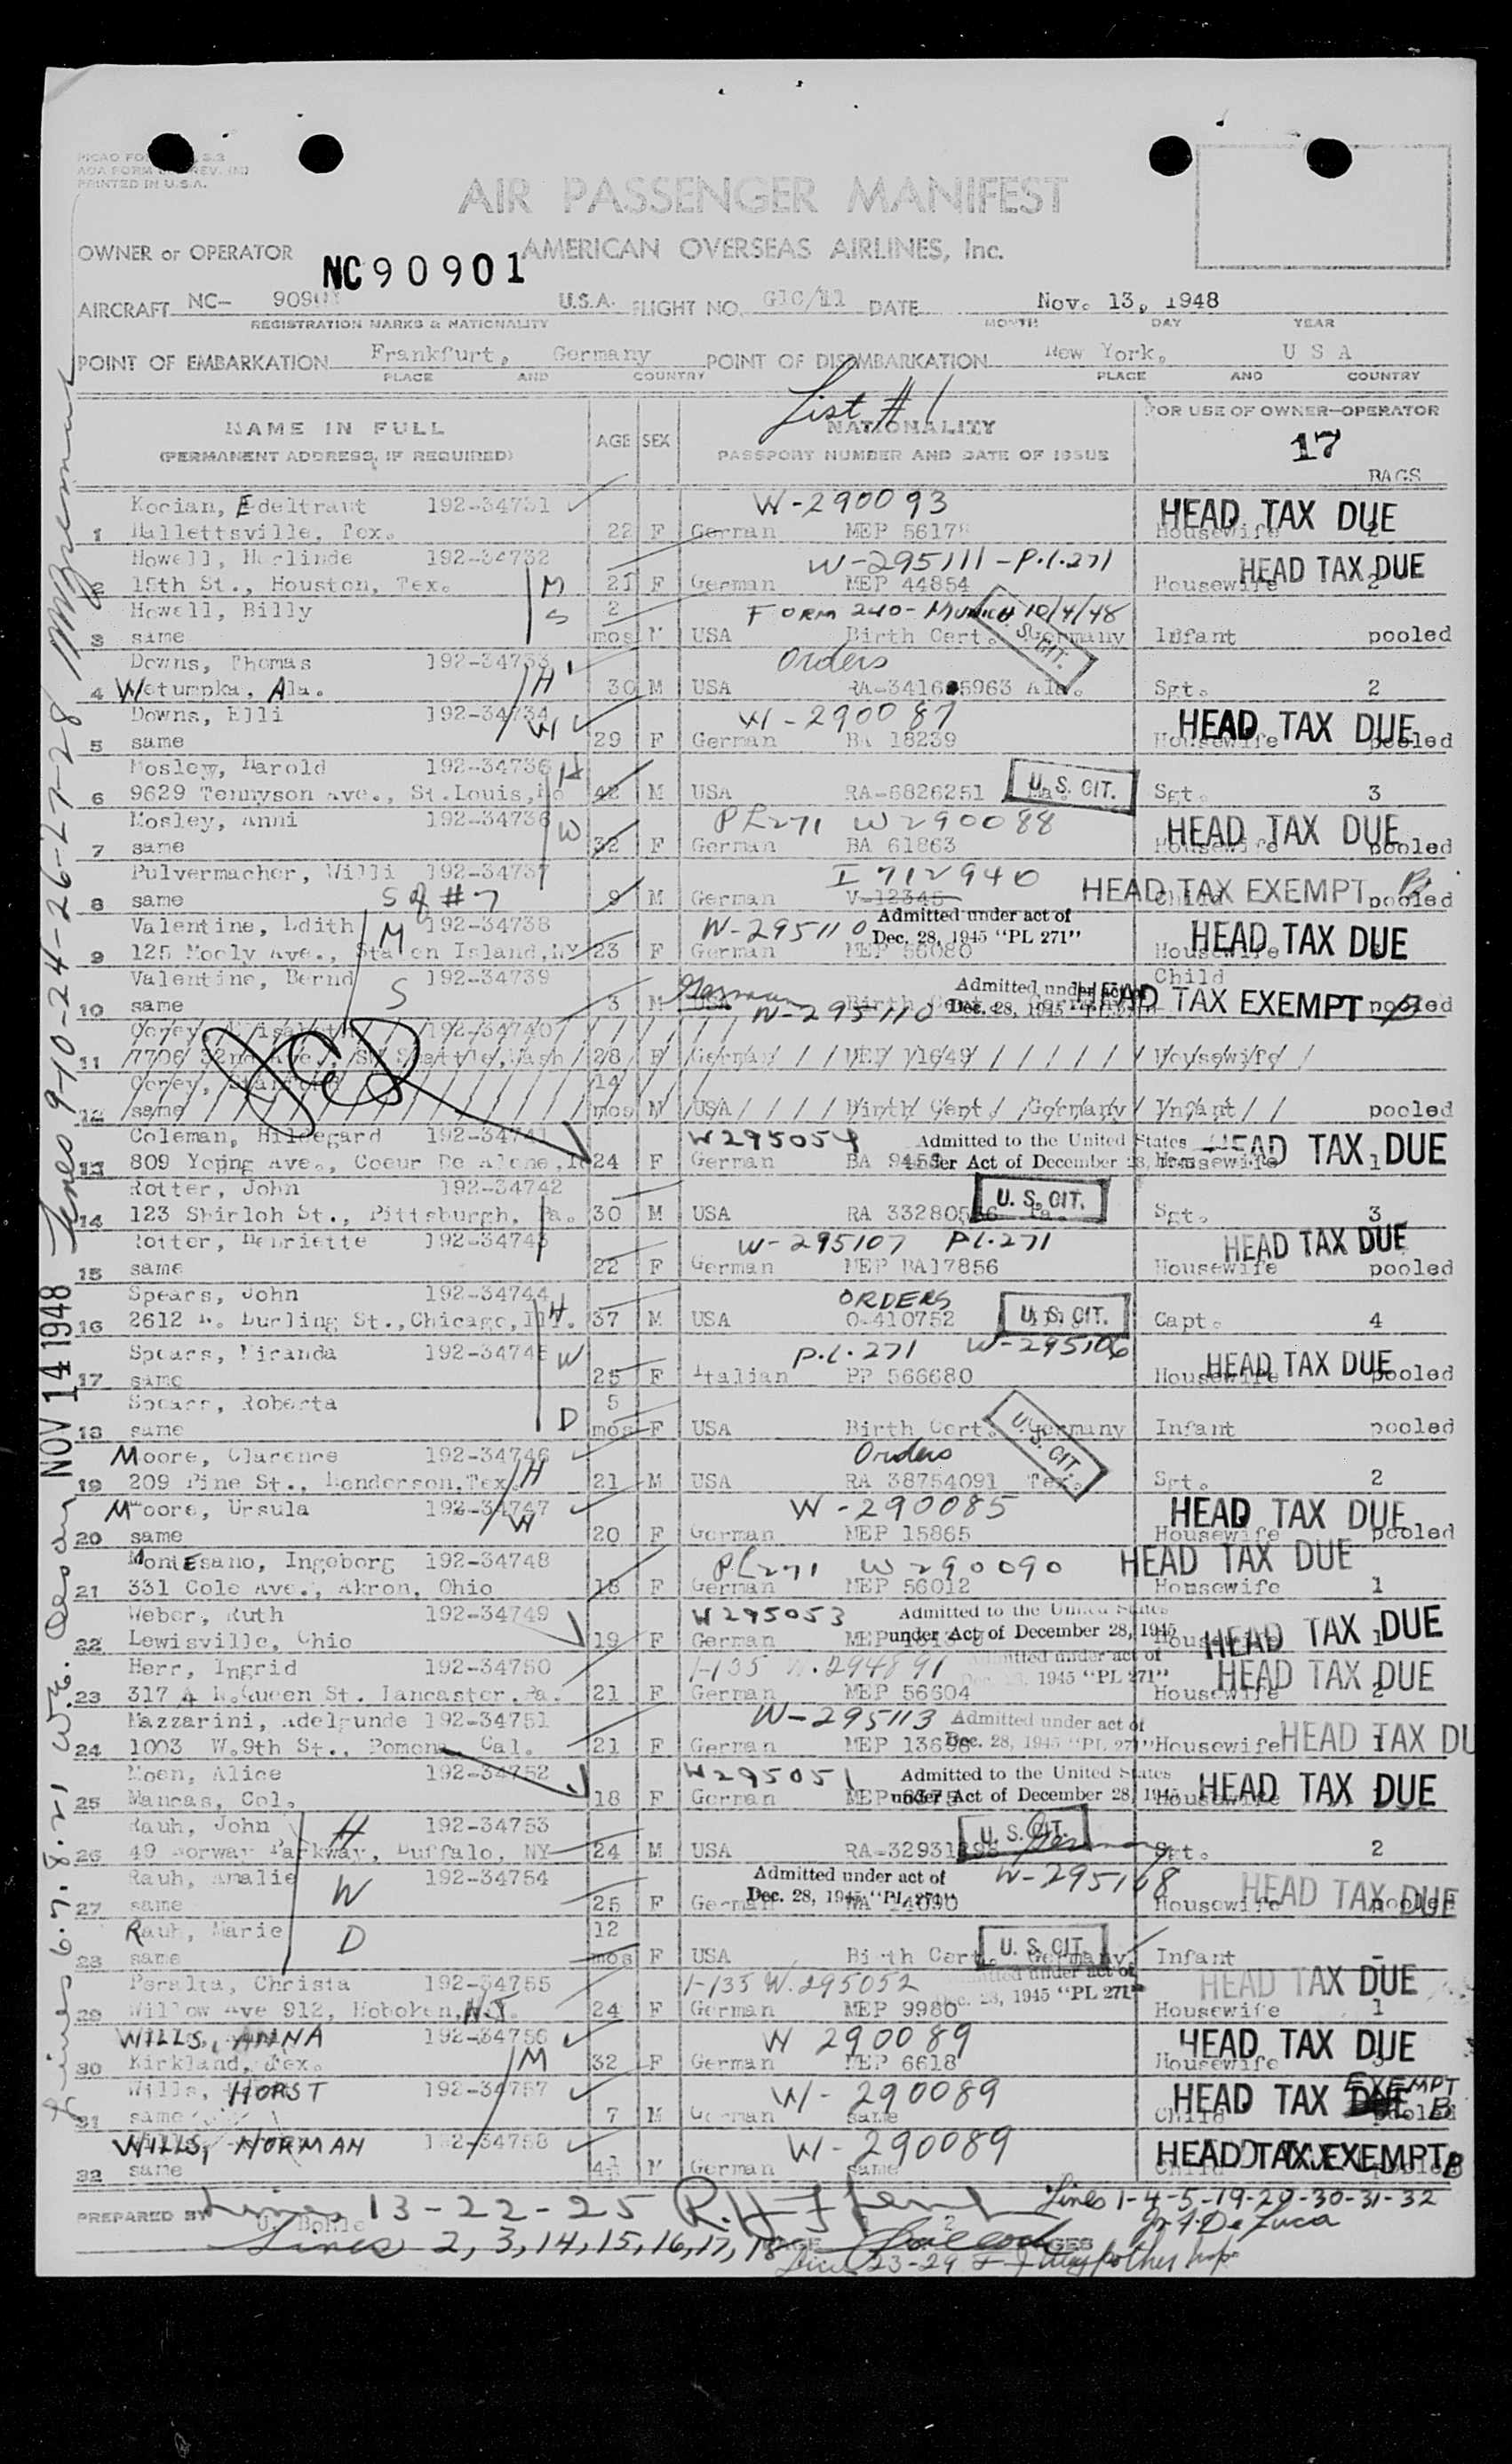 PRINTED IN U.S.A.
AIR PASSENGER MANIFEST
OWNER or OPERATOR AMERICAN OVERSEAS AIRLINES, Inc.
NC90901
AIRCRAFT NC- U.S.A. FLIGHT NO. DATE Nov. 13, 1948
REGISTRATION MARKS & NATIONALITY MONTH DAY YEAR
POINT OF EMBARKATION Frankfurt, Germany POINT OF DISEMBARKATION New York, U S A
PLACE AND COUNTRY PLACE AND COUNTRY
List # 1
NAME IN FULL AGE SEX NATIONALITY FOR USE OF OWNER-OPERATOR
(PERMANENT ADDRESS, IF REQUIRED) PASSPORT NUMBER AND DATE OF ISSUE 17
BAGS
Edeltraut 192-34731 W-290093 HEAD TAX DUE
1 Hallettsville, Tex. 22 F German MEP Housewife
Howell, Herlinde 192-34732 W-295111-P.L.271 HEAD TAX DUE
2 15th St., Houston, Tex. M 21 F German MEP 44854 Housewife 2
Howell, Billy S 2 FORM 240- MUNICH 10/4/48
3 same mos M USA Birth Cert. Germany Infant pooled
Downs, Thomas 192-34733 Orders
4 Wetumpka, Ala. H 30 M USA Sgt. 2
Downs, Elli 192-34734 W W-290087 HEAD TAX DUE
5 same 29 F German BA 18239 Housewife pooled
Harold 192-34736 H U.S. CIT.
6 9629 Tennyson Ave., St.Louis, 42 M USA RA-6826251 Sgt. 3
Mosley, Anni 192-34736 W PL271 W290088 HEAD TAX DUE
7 same 32 F German BA 61863 Housewife pooled
Pulvermacher, Willi 192-34737 I 712940 HEAD TAX EXEMPT
8 same S of #7 9 M German V-12345 Child pooled
Valentine, Edith M 192-34738 W-295110 Admitted under act of Dec. 28, 1945 "PL 271" HEAD TAX DUE
9 125 Ave., Staten Island, NY 23 F German MEP 56080 Housewife
Valentine, Bernd S 192-34739 German Admitted under act of Child
10 same 3 M USA W-295110 Birth Cert. Germany HEAD TAX EXEMPT pooled
192-34740
11 7706 32nd Ave., SW Seattle, Wash 28 F German MEP 11649 Housewife
Corey, 14
12 same mos M USA Birth Cert. Germany Infant pooled
Coleman, Hildegard 192-34741 W295054 Admitted to the United States HEAD TAX DUE
13 809 Young Ave., Coeur De Alene, 24 F German BA under Act of December 28, 1945 Housewife 1
Rotter, John 192-34742 U.S. CIT.
14 123 Shirloh St., Pittsburgh, Pa. 30 M USA RA Sgt. 3
Rotter, Henriette 192-34743 W-295107 PL.271 HEAD TAX DUE
15 same 22 F German MEP BA17856 Housewife pooled
Spears, John 192-34744 H ORDERS U.S. CIT.
16 2612 N. Burling St., Chicago, Ill. 37 M USA O-410752 Capt. 4
Spears, Miranda W P.L.271 W-295106 HEAD TAX DUE
17 same 25 F Italian PP 566680 Housewife pooled
Spears, Roberta D 5
18 same mos F USA Birth Cert. Germany U.S. CIT. Infant pooled
Moore, Clarence 192-34746 H Orders
19 209 Pine St., Henderson, Tex. 21 M USA RA 38754091 Tex. Sgt. 2
Moore, Ursula 192-34747 W W-290085 HEAD TAX DUE
20 same 20 F German MEP 15865 Housewife pooled
Montesano, Ingeborg 192-34748 PL271 W290090 HEAD TAX DUE
21 331 Cole Ave., Akron, Ohio 18 F German MEP 56012 Housewife 1
Weber, Ruth 192-34749 W295053 Admitted to the United States
22 Lewisville, Ohio 19 F German MEP under Act of December 28, 1945 HEAD TAX DUE 1
Herr, Ingrid 192-34750 1-135 W.294891 Admitted under act of Dec. 28, 1945 "PL 271" HEAD TAX DUE
23 317 N.Queen St. Lancaster, Pa. 21 F German MEP 56604 Housewife 2
Mazzarini, Adelgunde 192-34751 W-295113 Admitted under act of
24 1003 W.9th St., Pomona, Cal. 21 F German MEP Dec. 28, 1945 "PL 271" Housewife HEAD TAX DU
Moen, Alice 192-34752 W295051 Admitted to the United States
25 Mancas, Col. 18 F German MEP under Act of December 28, 1945 Housewife HEAD TAX DUE
Rauh, John H 192-34753 U.S. CIT. German
26 49 Norway Parkway, Buffalo, NY 24 M USA Sgt. 2
Rauh, Amalie W 192-34754 Admitted under act of
27 same 25 F German Dec. 28, 1945 "PL 271" Housewife HEAD TAX DUE pooled
Rauh, Marie D 12 U.S. CIT.
28 same mos F USA Birth Cert. Germany Infant -
Peralta, Christa 192-34755 1-135 W.295052 Admitted under act of Dec. 28, 1945 "PL 271" HEAD TAX DUE
29 Willow Ave 912, Hoboken, N.J. 24 F German MEP 9980 Housewife 1
WILLS, ANNA 192-34756 W 290089 HEAD TAX DUE
30 Kirkland, Tex. M 32 F German MEP 6618 Housewife
Wills, HORST 192-34757 W-290089 HEAD TAX EXEMPT
31 same 7 M German same Child pooled
WILLS, NORMAN 192-34758 W-290089 HEAD TAX EXEMPT
32 same M German same
PREPARED BY Lines 13-22-25 Lines 1-4-5-19-20-30-31-32
De Luca
Lines 2, 3, 14, 15, 16, 17, 18
Lines 23-29
NOV 14 1948 Lines 9-10-24-26-27-28
Lines 6.7.8.21